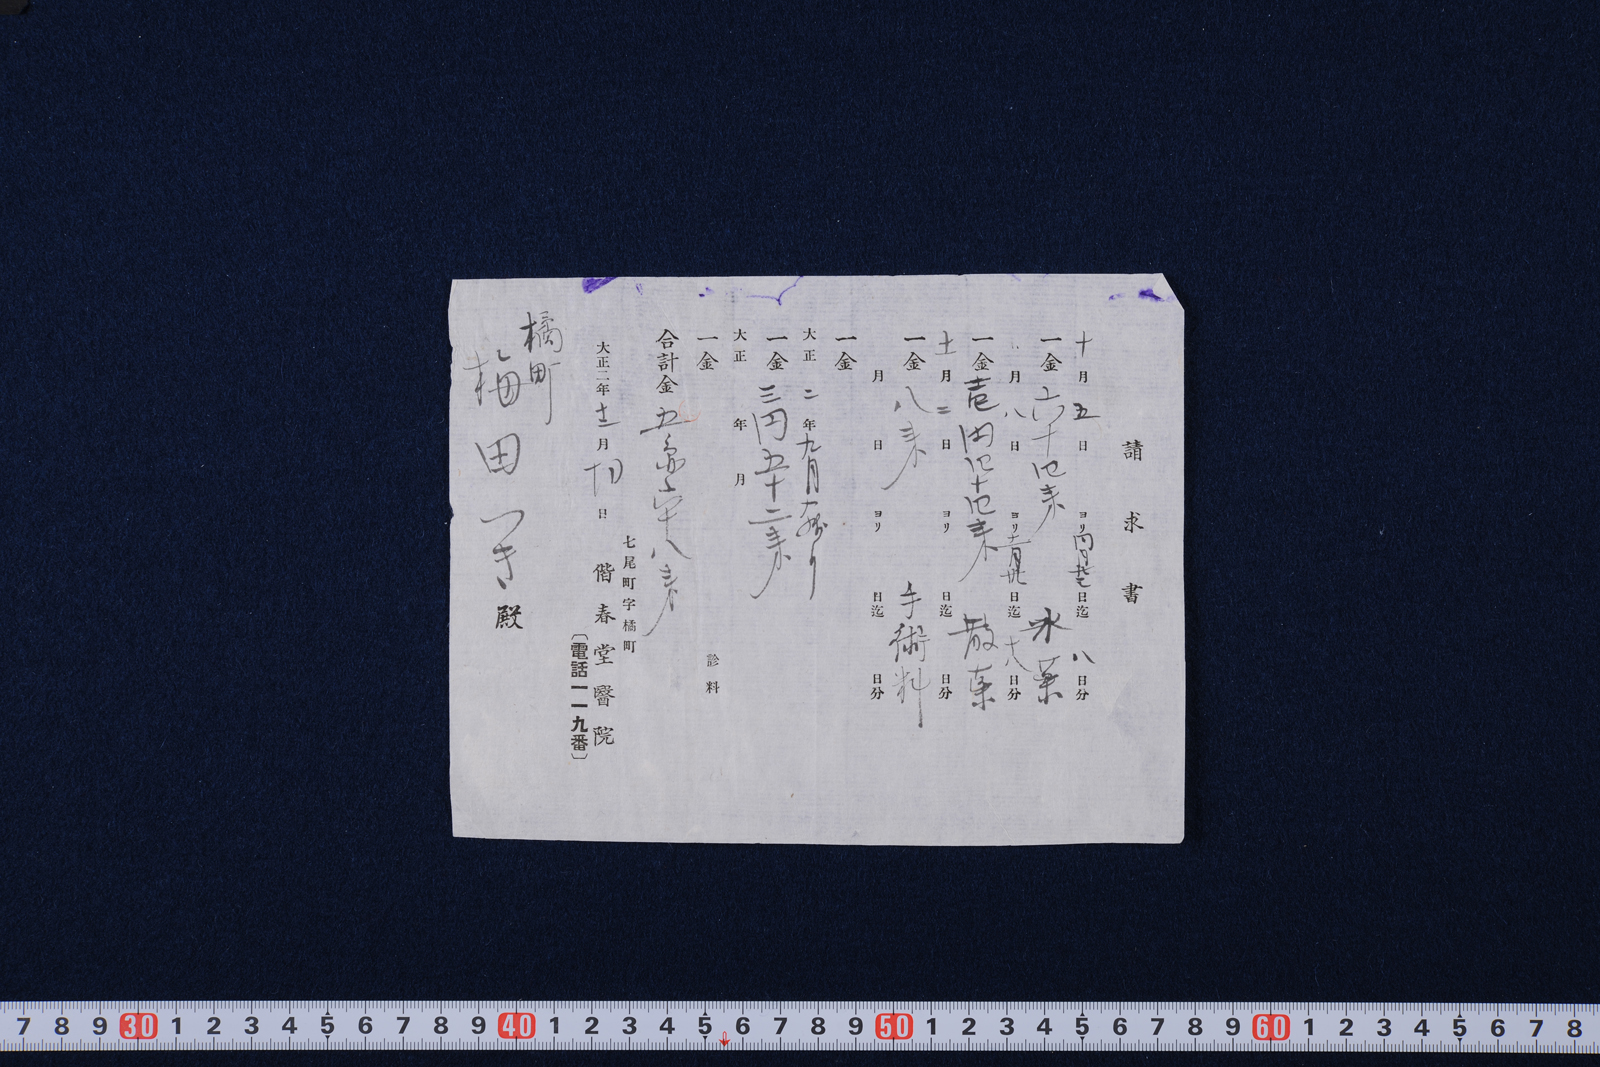 請求書
十月五日ヨリ 日迄八日分
一金六十四銭 水薬
〃月八日ヨリ十一月 日迄十八日分
一金壱円四十四銭 散薬
十一月二日ヨリ 日迄 日分
一金八銭 手術料
月 日ヨリ 日迄 日分
一金
大正二年九月
一金三円五十二銭
大正 年 月
一金 診料
合計金五円六十八銭
七尾町字橘町
大正二年十二月 日 偕春堂醫院
〔電話一一九番〕
橘町
梅田つき殿
7 8 9 30 1 2 3 4 5 6 7 8 9 40 1 2 3 4 5 6 7 8 9 50 1 2 3 4 5 6 7 8 9 60 1 2 3 4 5 6 7 8